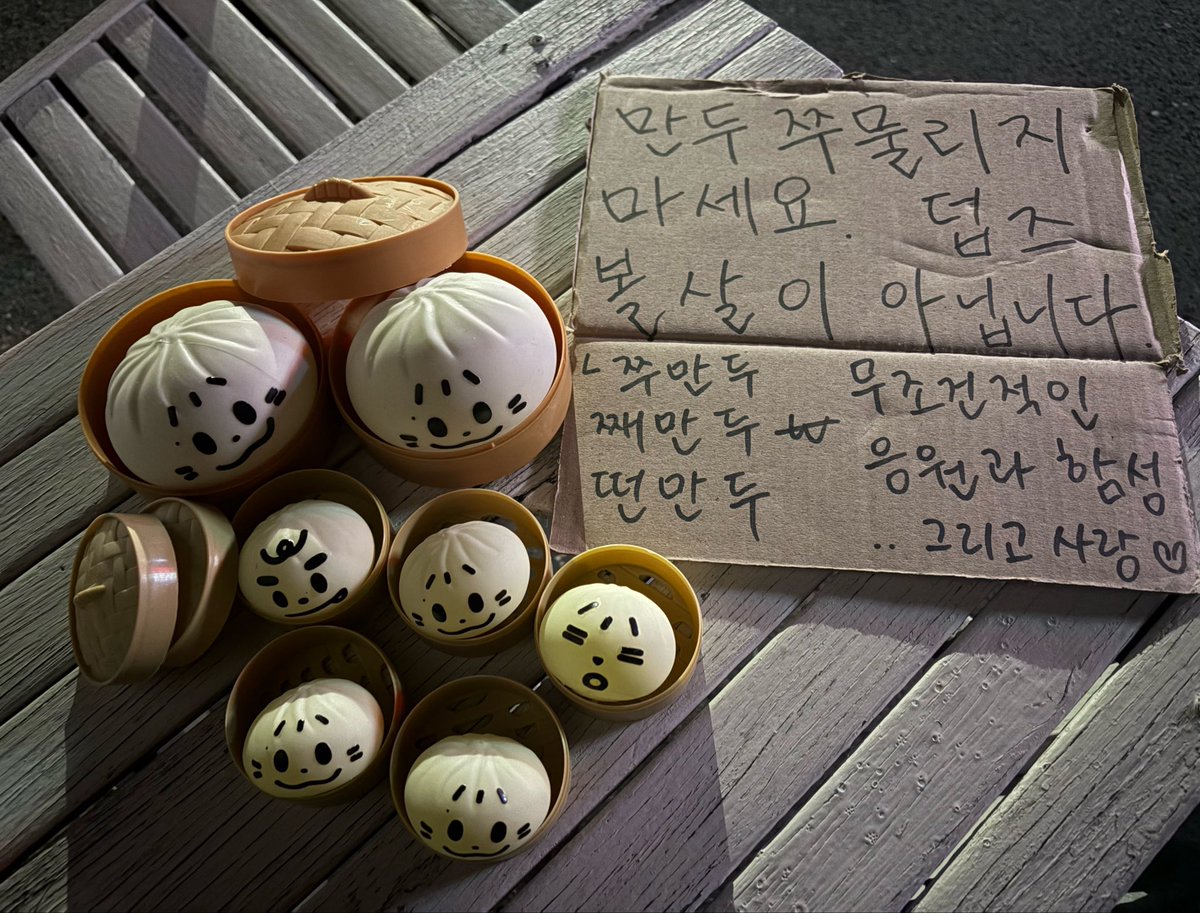 만두 쭈물리지
마세요. 덥즈
볼살이 아닙니다.
쭈만두
째만두
떤만두
무조건적인
응원과 함성
.. 그리고 사랑♡